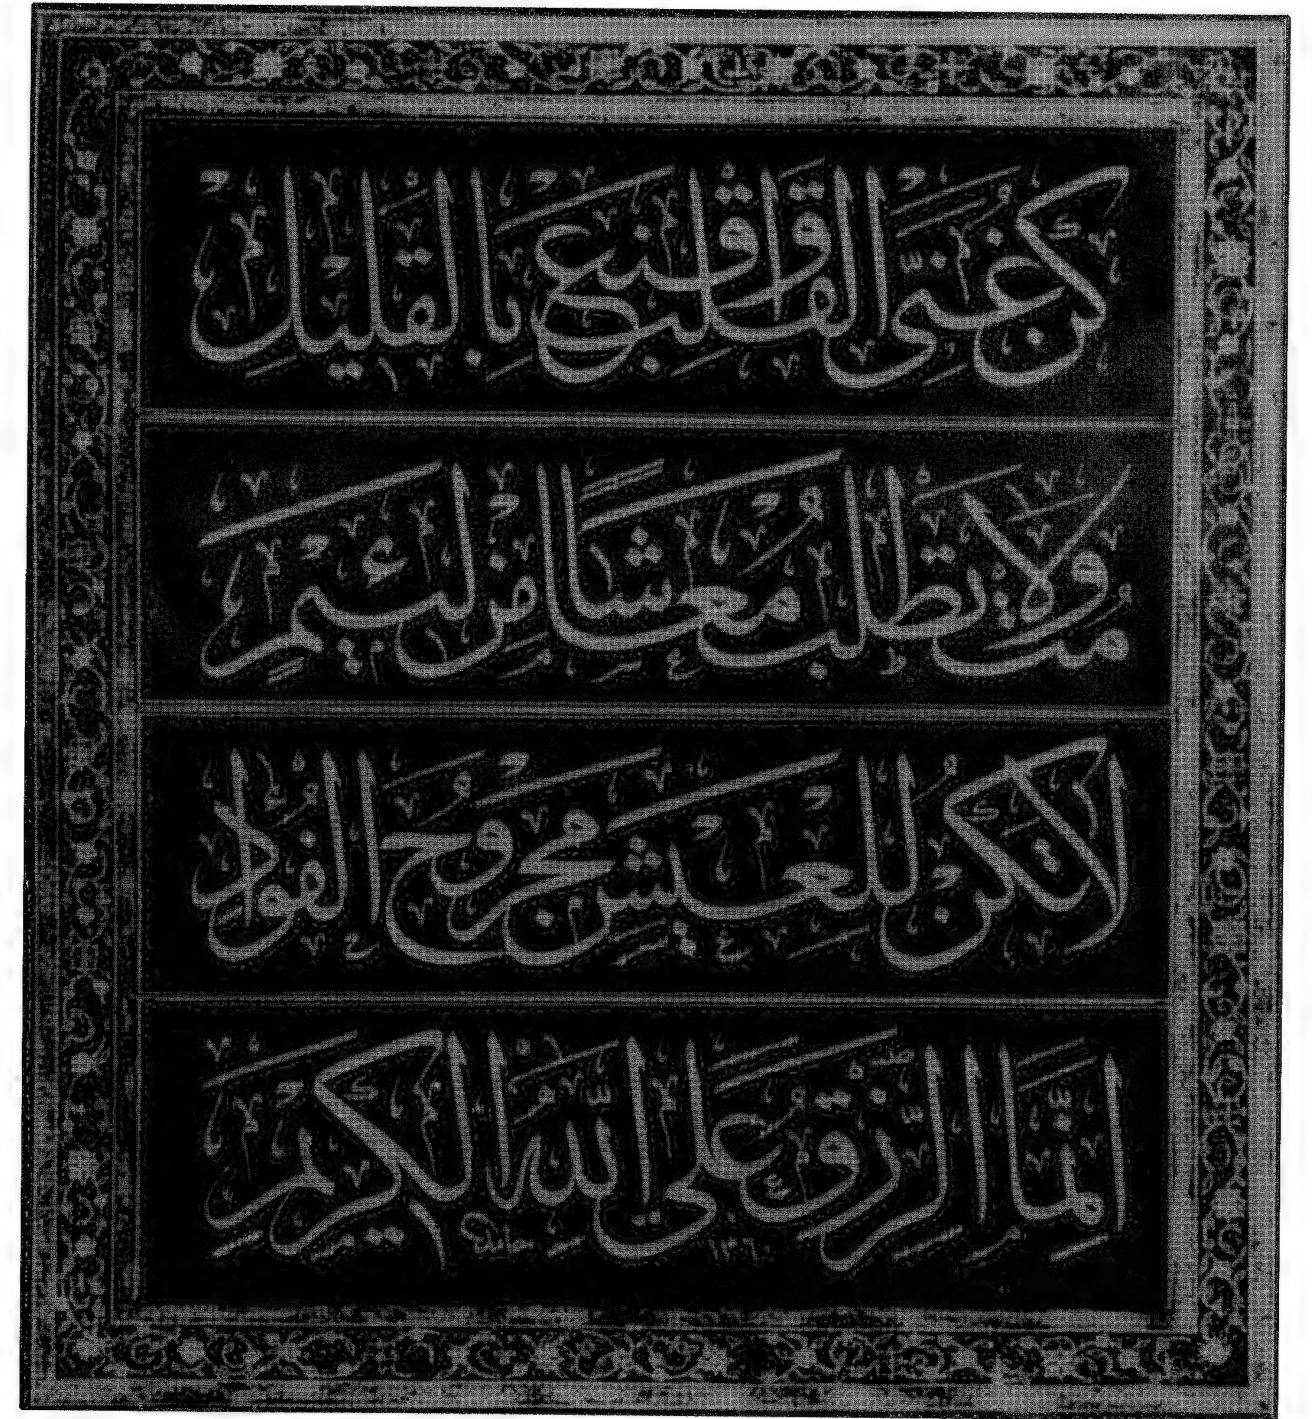 كُنْ غَنِيَّ الْقَلْبِ وَاقْنَعْ بِالْقَلِيلِ
مُتْ وَلَا تَطْلُبْ مَعَاشًا مِنْ لَئِيمٍ
لَا تَكُنْ لِلْعَيْشِ مَجْرُوحَ الْفُؤَادِ
إِنَّمَا الرِّزْقُ عَلَى اللّٰهِ الْكَرِيمِ